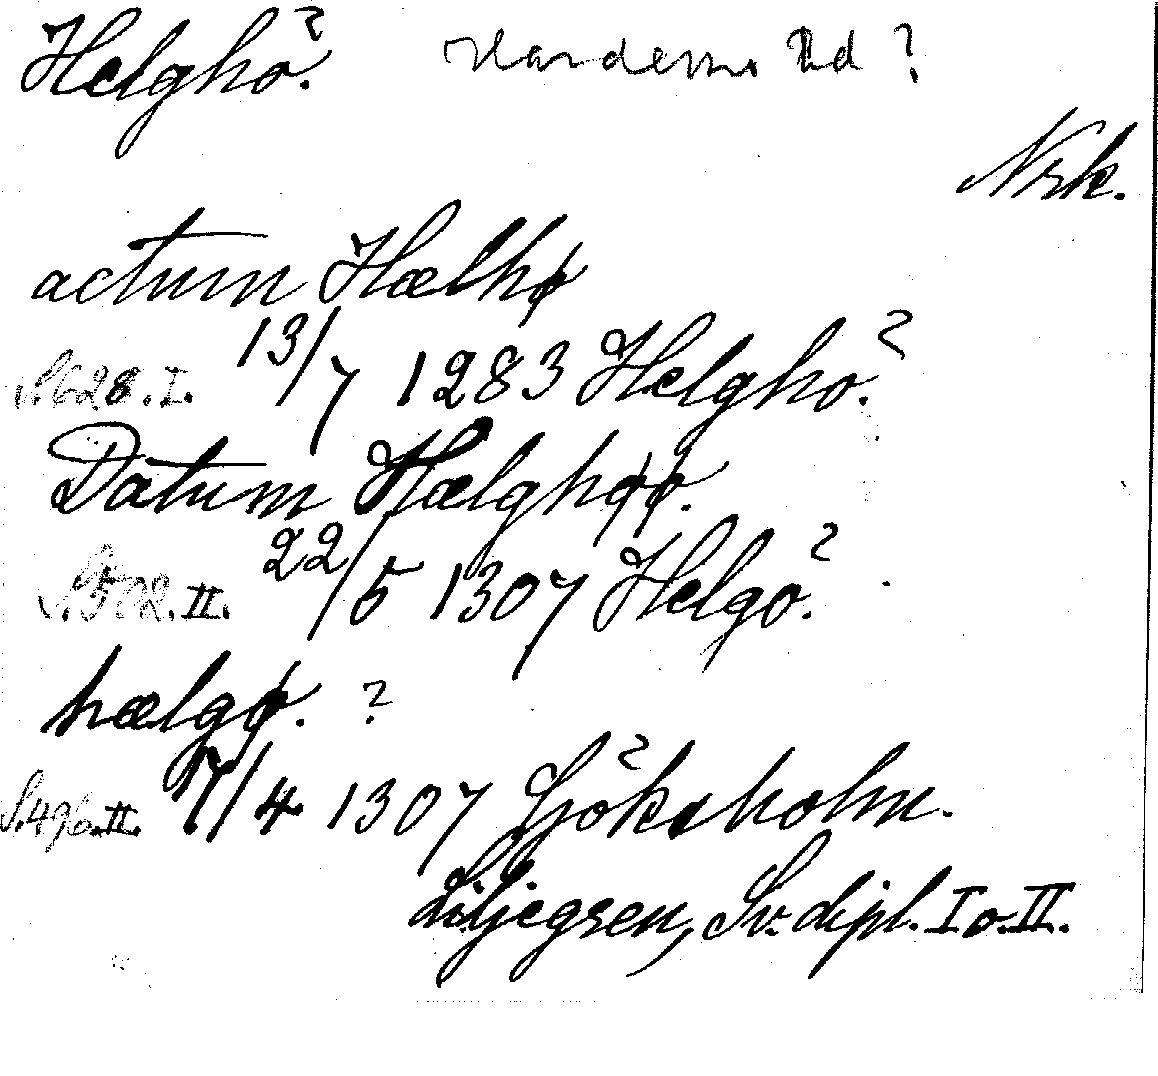 Helgho.? Hardemo sd ?
Nrk.
actum Hælhø
S. 628. I. 13/7 1283 Helgho.?
Datum Hælghøø.
S. 502. II. 22/5 1307 Helgö.?
hælgø. ?
S. 496. II. 7/4 1307 Sjöksholm.?
Liljegren, Sv. dipl. I o. II.